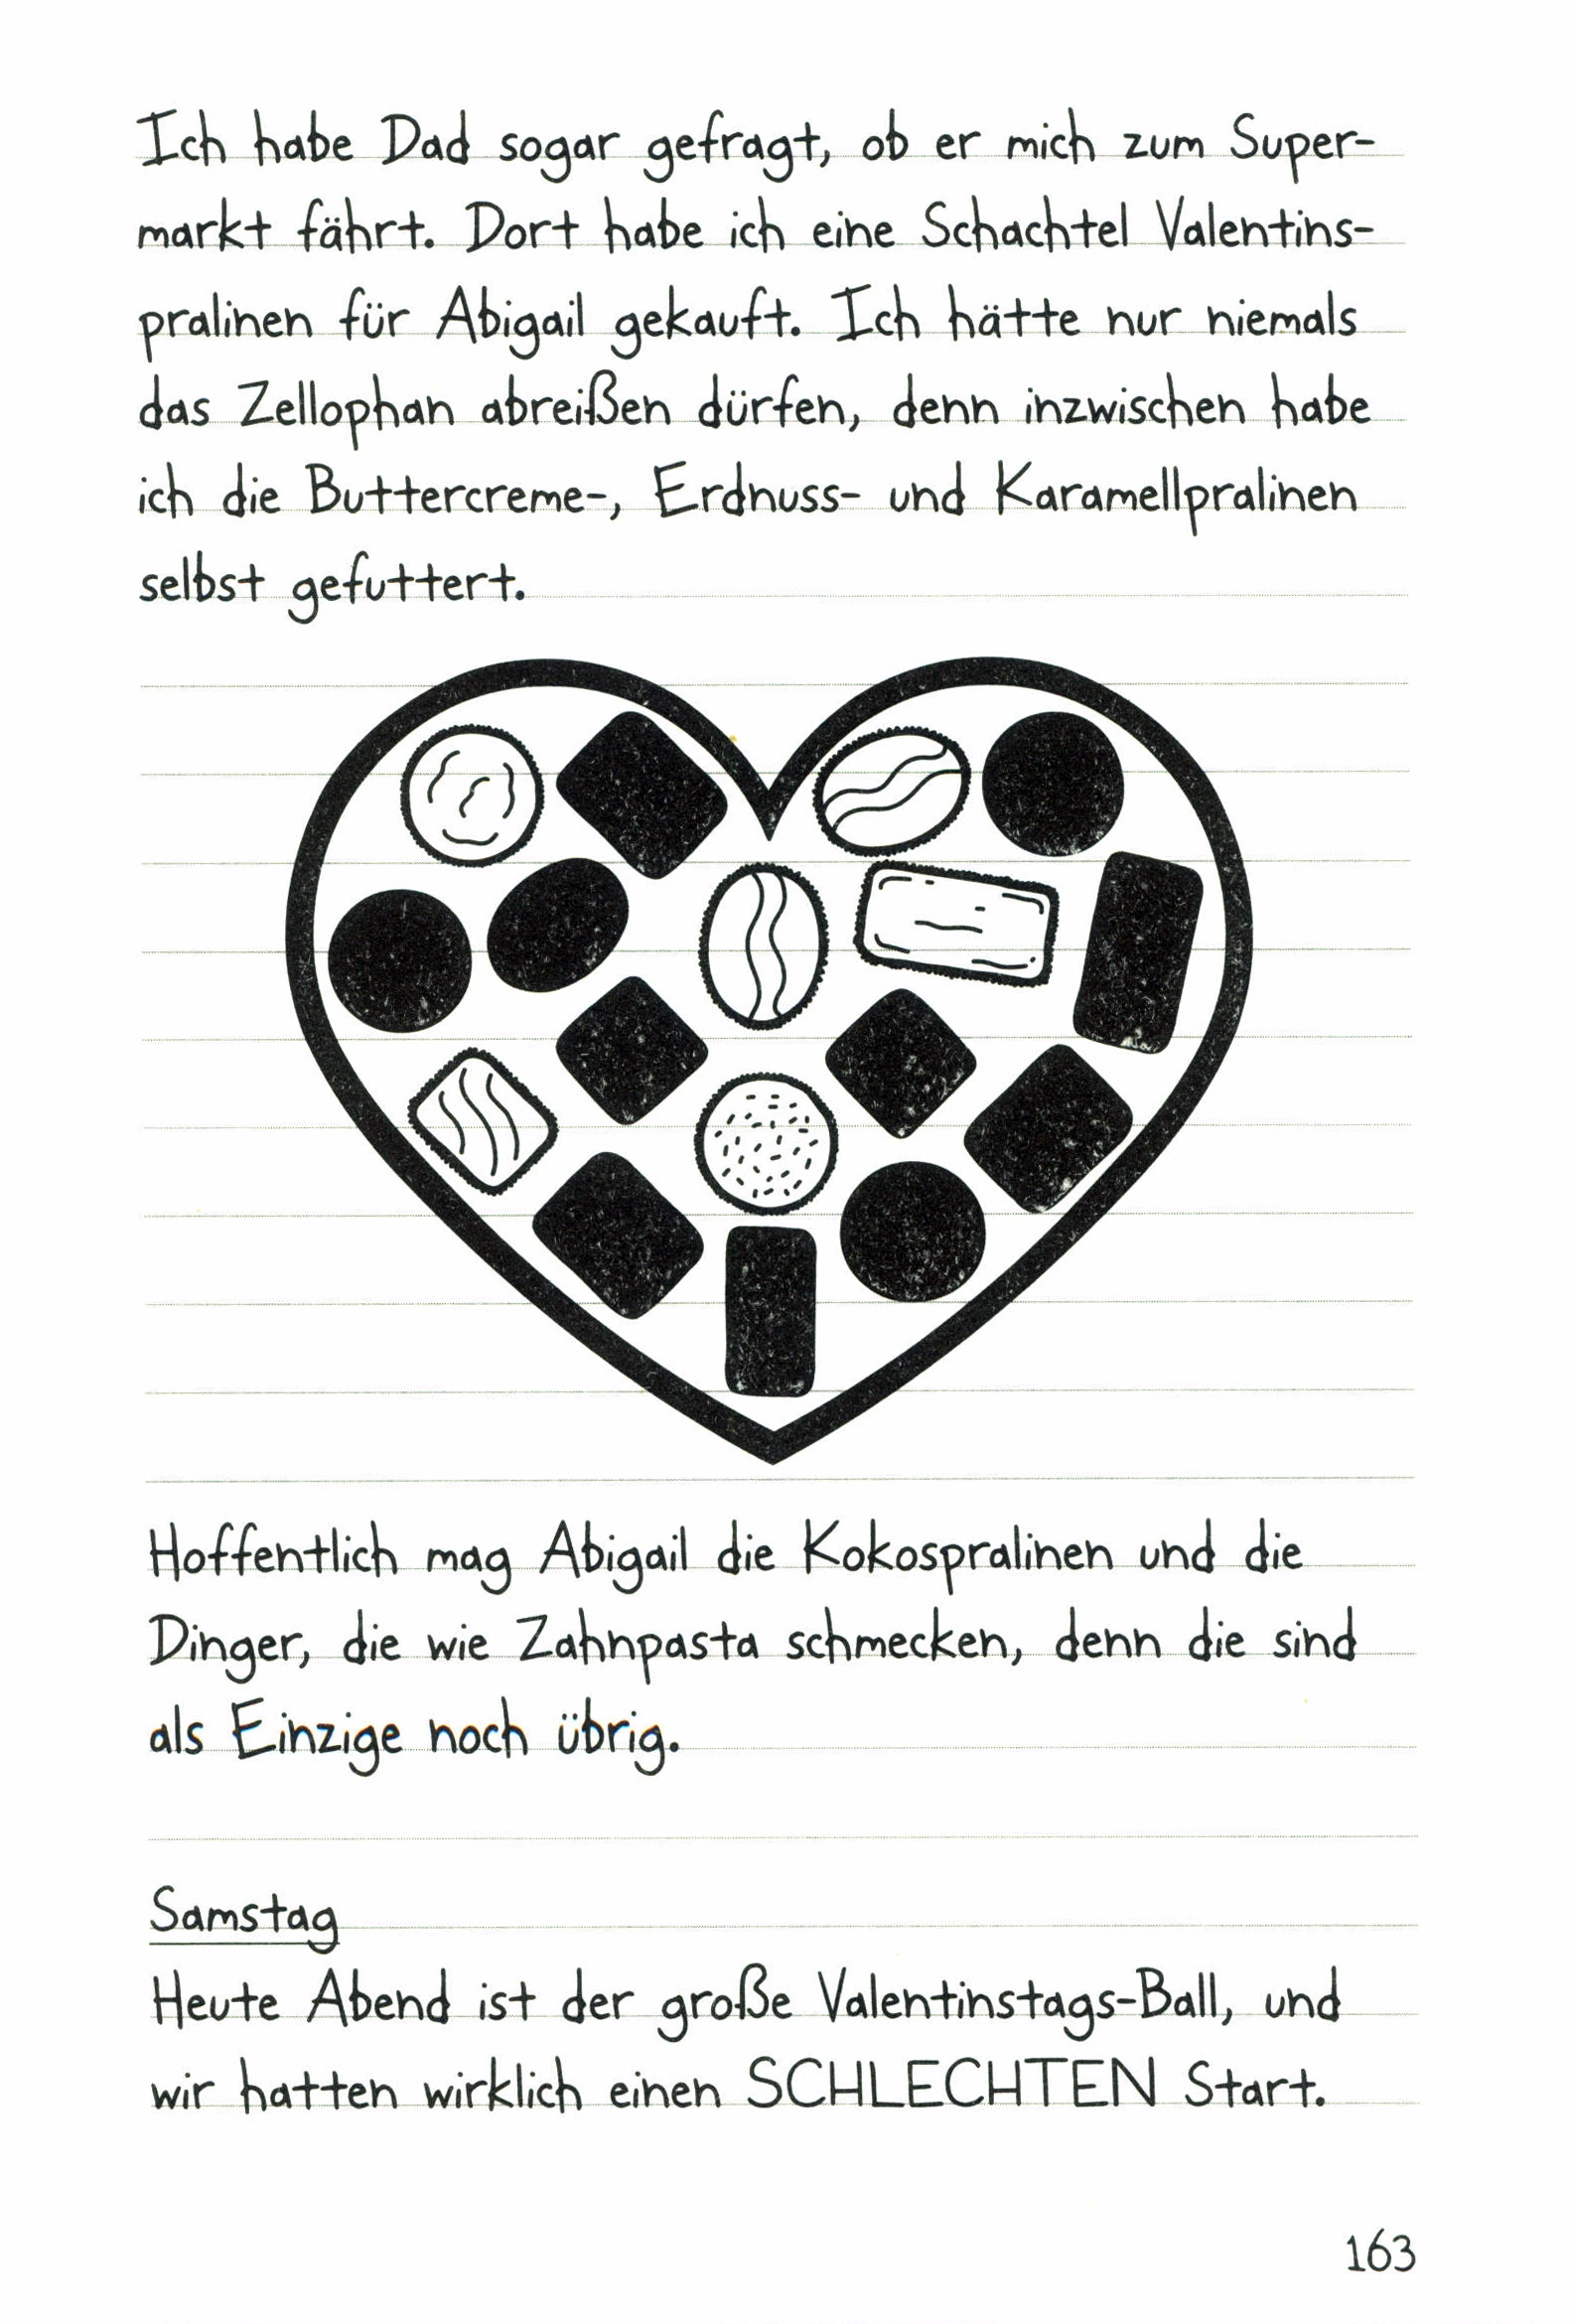 Ich habe Dad sogar gefragt, ob er mich zum Super-
markt fährt. Dort habe ich eine Schachtel Valentins-
pralinen für Abigail gekauft. Ich hätte nur niemals
das Zellophan abreißen dürfen, denn inzwischen habe
ich die Buttercreme-, Erdnuss- und Karamellpralinen
selbst gefuttert.
Hoffentlich mag Abigail die Kokospralinen und die
Dinger, die wie Zahnpasta schmecken, denn die sind
als Einzige noch übrig.
Samstag
Heute Abend ist der große Valentinstags-Ball, und
wir hatten wirklich einen SCHLECHTEN Start.
163